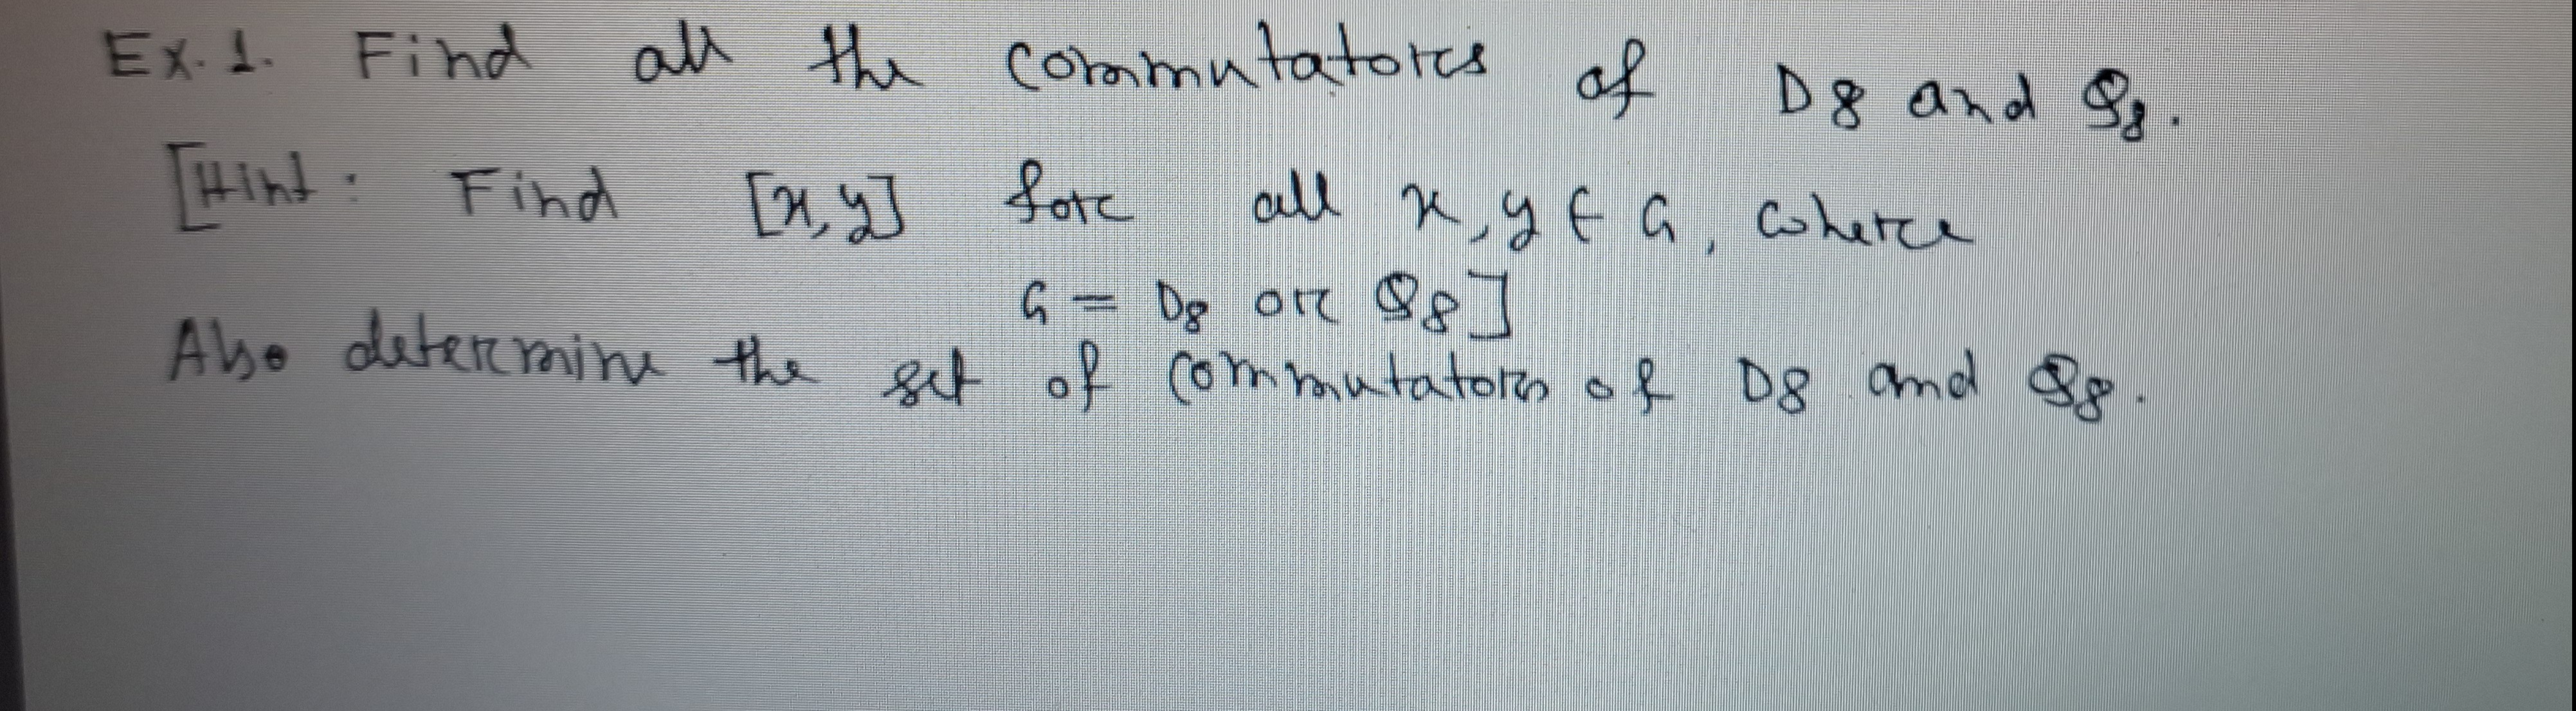 Ex. 1. Find all the commutators of D8 and Q8.
[Hint: Find [x,y] for all x, y ∈ G, where
G = D8 or Q8]
Also determine the set of commutators of D8 and Q8.